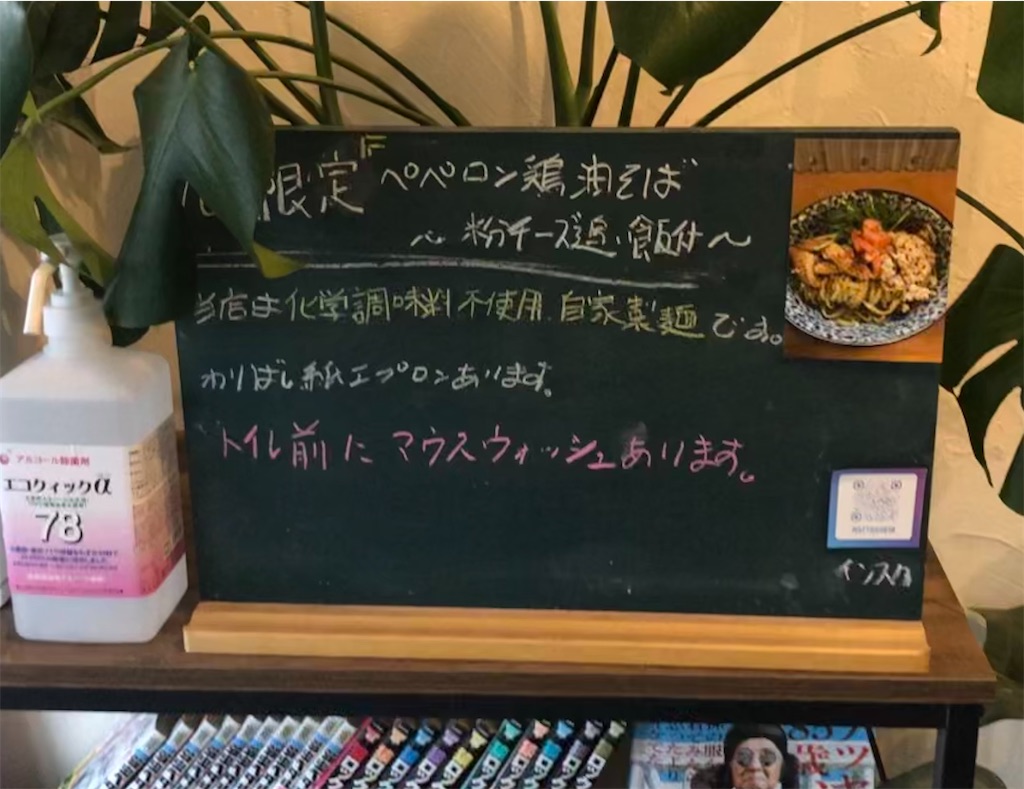 限定 ペペロン鶏油そば
～ 粉チーズ追い飯付 ～
当店は化学調味料不使用 自家製麺です。
わりばし紙エプロンあります。
トイレ前にマウスウォッシュあります。
インスタ
アルコール除菌剤
エコクイックα
78